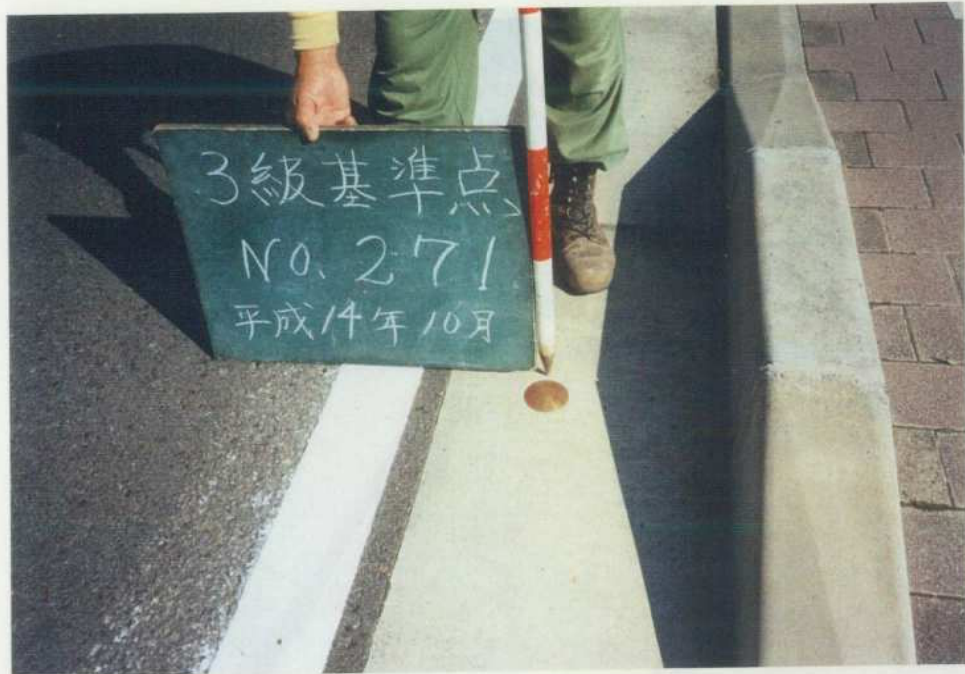 3級基準点
NO. 271
平成14年10月